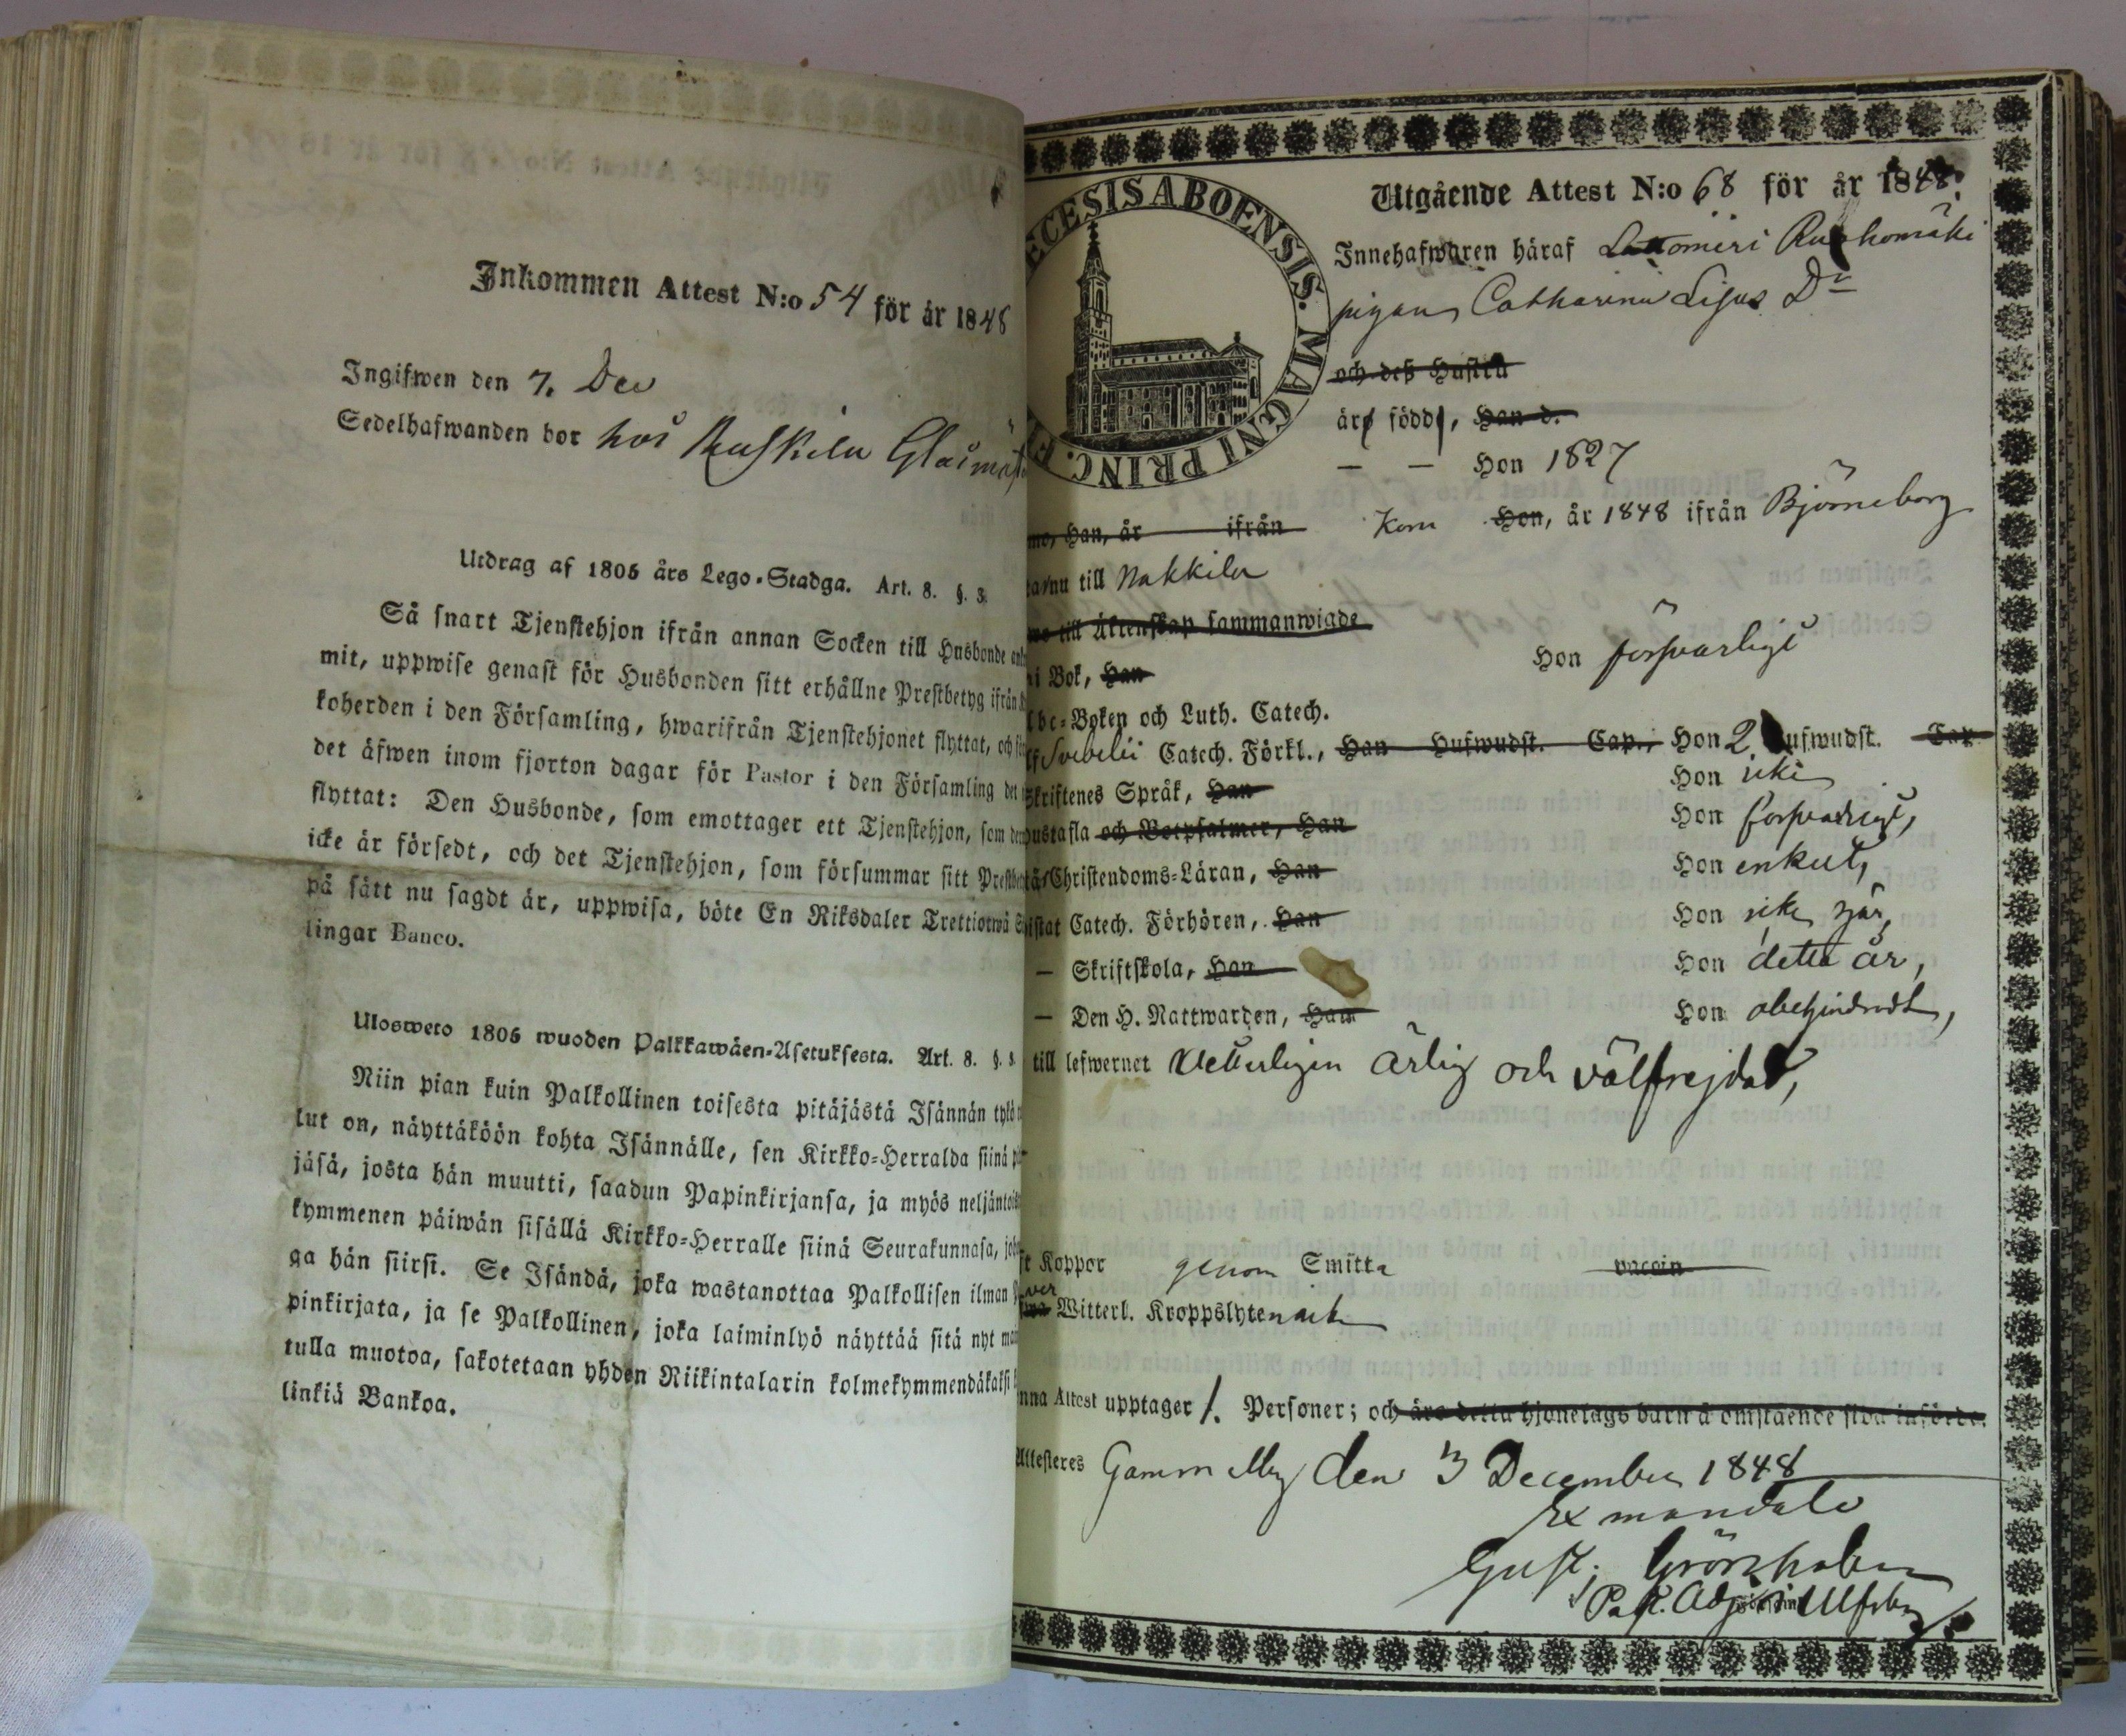 Inkommen Attest N:o 54 för år 1848
Ingifwen den 7. Dec
Sedelhafwanden bor hos
Utdrag af 1805 års Lego-Stadga. Art. 8. §. 3.
Så snart Tjenstehjon ifrån annan Socken till Husbonde
mit, uppwise genast för Husbonden sitt erhållne Prestbetyg ifrån
koherden i den Församling, hwarifrån Tjenstehjonet flyttat, och
det äfwen inom fjorton dagar för Pastor i den Församling det
flyttat: Den Husbonde, som emottager ett Tjenstehjon, som
icke är försedt, och det Tjenstehjon, som försummar sitt
på sätt nu sagdt är, uppwisa, böte En Riksdaler Trettiotwå
lingar Banco.
Ulosweto 1805 wuoden Palkkawäen-Asetuksesta. Art. 8. §. 3.
Niin pian kuin Palkollinen toisesta pitäjästä Isännän tykö
lut on, näyttäköön kohta Isännälle, sen Kirkko-Herralda siinä
jäsä, josta hän muutti, saadun Papinkirjansa, ja myös
kymmenen päiwän sisällä Kirkko-Herralle siinä Seurakunnasa,
ga hän siirsi. Se Isändä, joka wastanottaa Palkollisen ilman
pinkirjata, ja se Palkollinen, joka laiminlyö näyttää sitä nyt
tulla muotoa, sakotetaan yhden Riikintalarin kolmekymmendäkaksi
linkiä Bankoa.
ECESIS ABOENSIS. MAGNI PRINC. F
Utgående Attest N:o 68 för år 1848.
Innehafwaren häraf Lattomeri Ruohomäki
pigan Catharina Lisa Dr
och deß Hustru
äro födde, Han d.
— — Hon 1827
Han, år ifrån Kom Hon, år 1848 ifrån Björneborg
nu till Nakkila
till Äktenskap sammanwigde
i Bok, Han Hon försvarligt
bc-Boken och Luth. Catech.
Svebelii Catech. Förkl., Han Hufwudst. Cap., Hon 2 Hufwudst. Cap
Skriftenes Språk, Han Hon icke
ustafla och Botpsalmer, Han Hon försvarligt,
Christendoms-Läran, Han Hon enkelt,
istat Catech. Förhören, Han Hon icke här,
— Skriftskola, Han Hon detta år,
— Den H. Nattwarden, Han Hon obehindradt,
till lefwernet Vetterligen ärlig och välfrejdad,
Koppor genom Smitta vaccin
Witterl. Kroppslyte
nna Attest upptager 1. Personer; och äro detta hjonelags barn å omstående sida införde.
Attesteres Gammelby den 3 December 1848
Ex mandato
Gust. Grönholm
Past. Adj. i Ulfsby